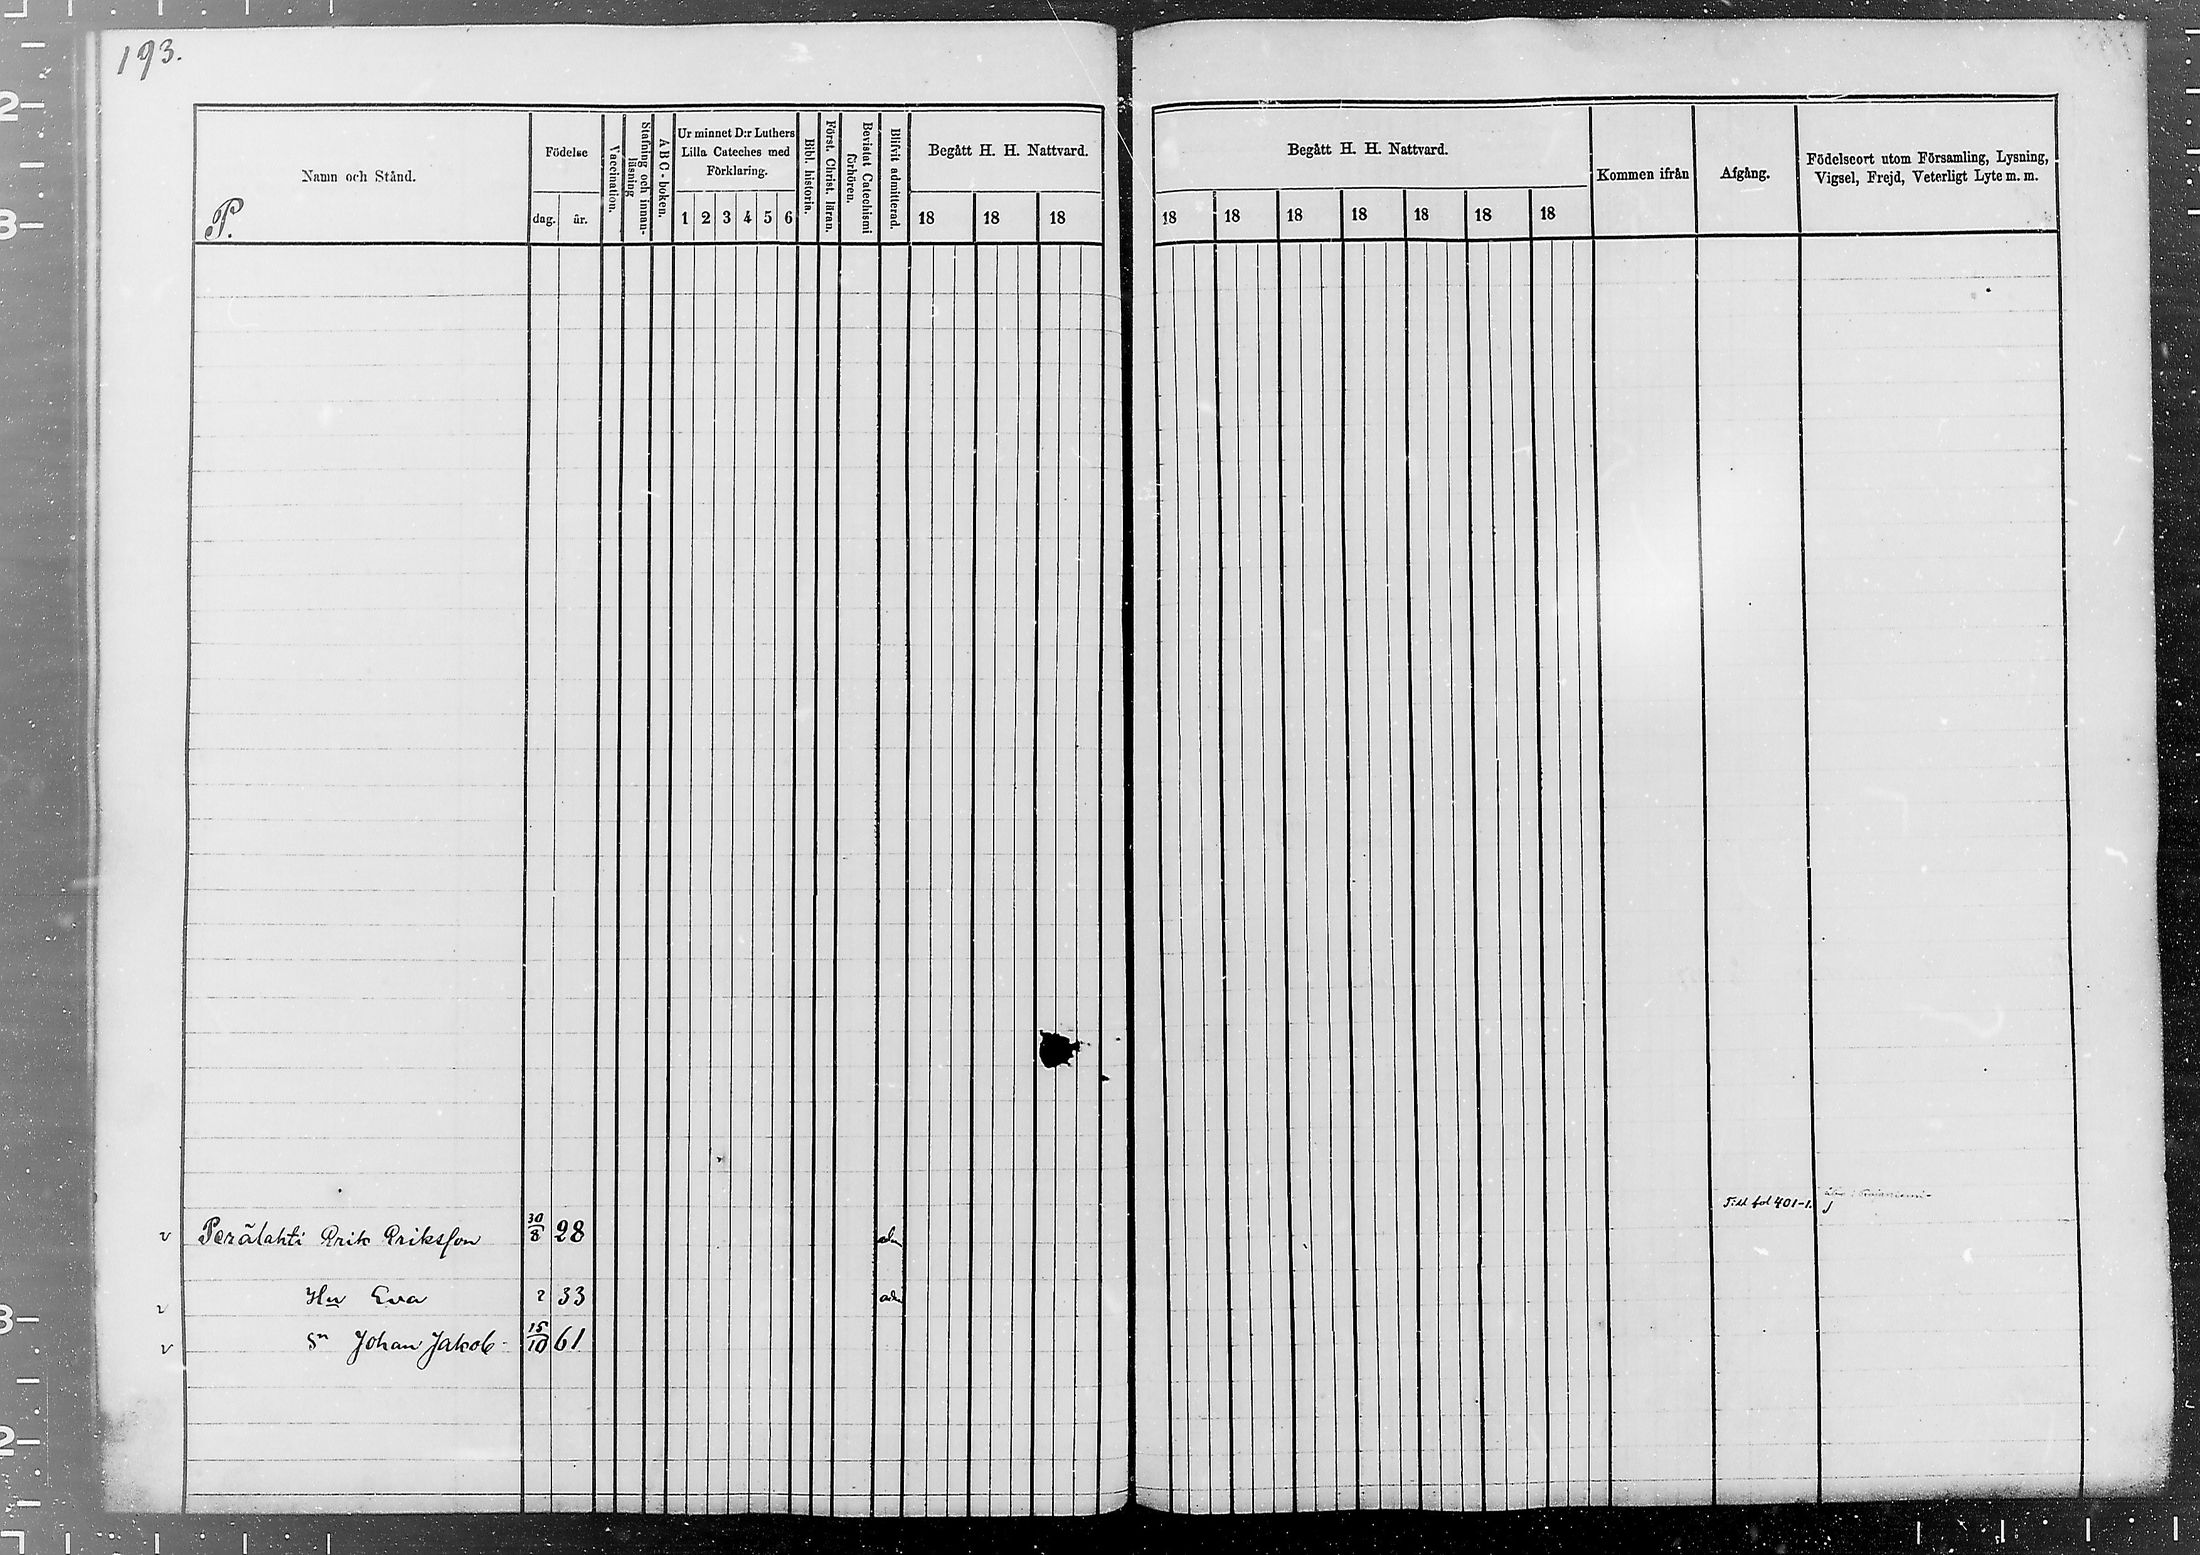 193.
Namn och Stånd.
P.
Födelse
dag. år.
Vaccination.
Stafning och innan-
läsning
A B C - boken.
Ur minnet D:r Luthers
Lilla Cateches med
Förklaring.
1 2 3 4 5 6
Bibl. historia.
Först. Christ. läran.
Bevistat Catechismi
förhören.
Blifvit admitterad.
Begått H. H. Nattvard.
18 18 18
Begått H. H. Nattvard.
18 18 18 18 18 18 18
Kommen ifrån
Afgång.
Födelseort utom Församling, Lysning,
Vigsel, Frejd, Veterligt Lyte m. m.
Till fol 401-1.
v Perälahti Erik Eriksson 30/8 28 adm
v Hu Eva ? 33 adm
v Sn Johan Jakob 15/10 61